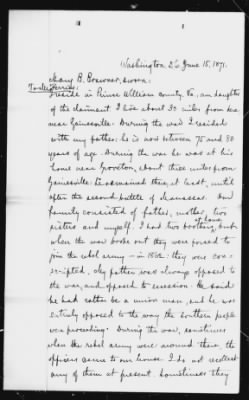 Washington D.C. June 15, 1871.
Mary B. Brawner, sworn:
To Interrogs:
I reside in Prince William County Va., am daughter
of the claimant I live about 35 miles from here
near Gainesville. During the war I resided
with my father: he is now between 75 and 80
years of age. During the war he was at his
home near Groveton, about three miles from
Gainesville: he remained there, at least, until
after the second battle of Manassas. Our
family consisted of father, mother, two
sisters and myself. I had two brothers at home, but
when the war broke out they were forced to
join the rebel army – in 1862. they were con-
scripted. My father was always opposed to
the war, and opposed to secession. He said
he had rather be a union man, and he was
entirely opposed to the way the southern people
was proceeding. During the war, sometimes
when the rebel army were around there, the
officers came to our house. I do not recollect
any of them at present. Sometimes they